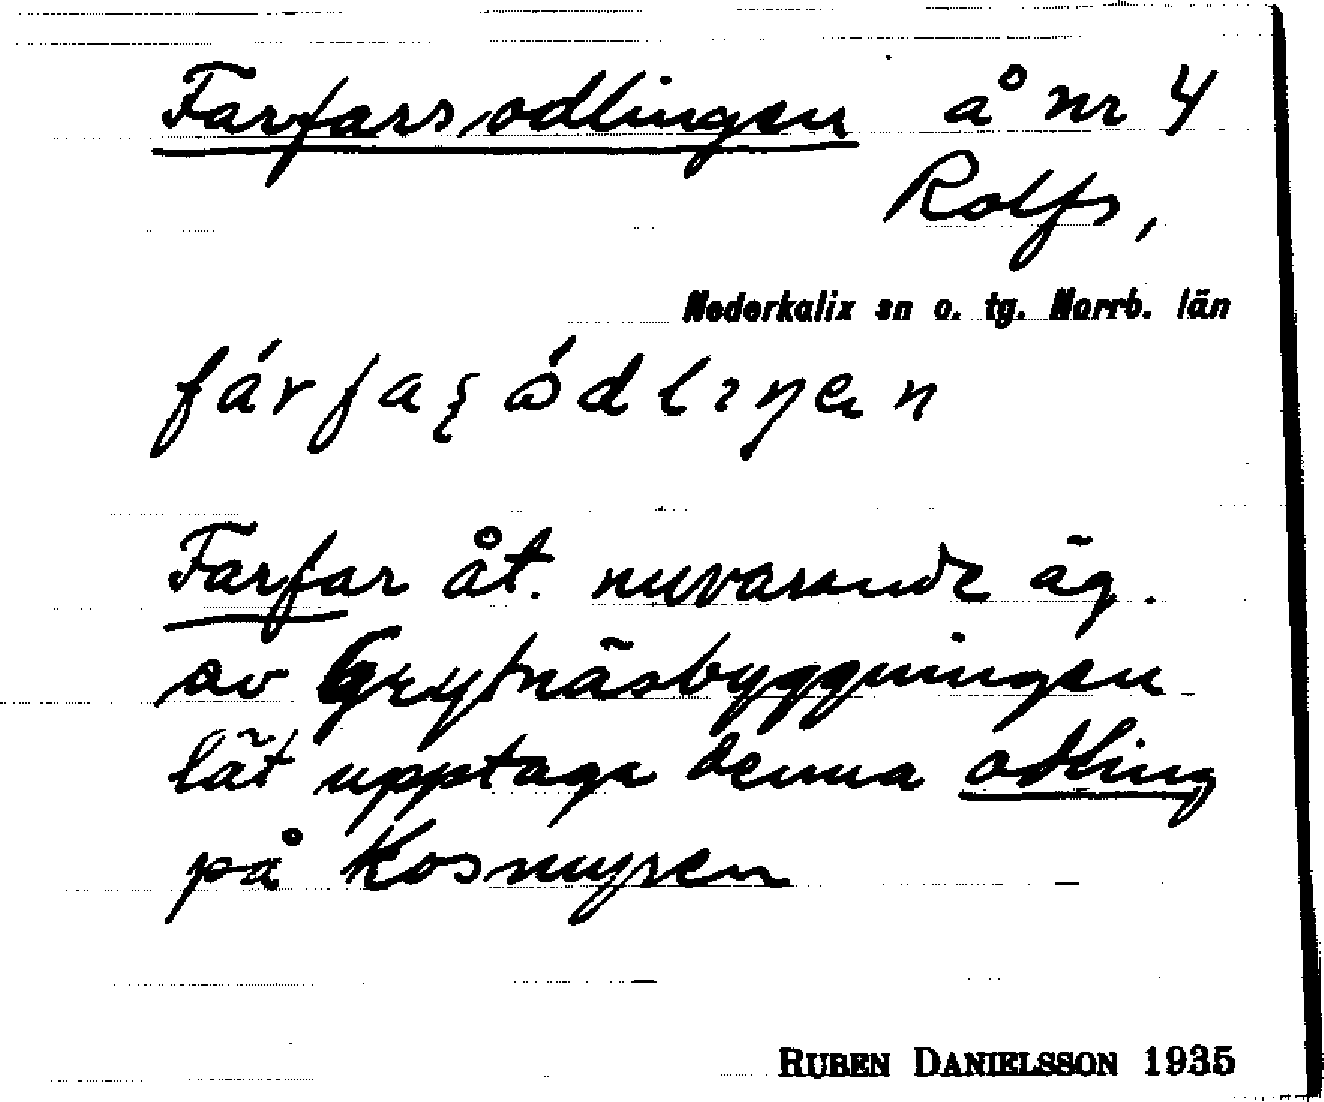 Farfarsodlingen å nr 4
Rolfs,
Nederkalix sn o. tg. Norrb. län
Farfar åt. nuvarande äg.
av Grytnäsbyggningen
lät upptaga denna odling
på Kosmyren
RUBEN DANIELSSON 1935